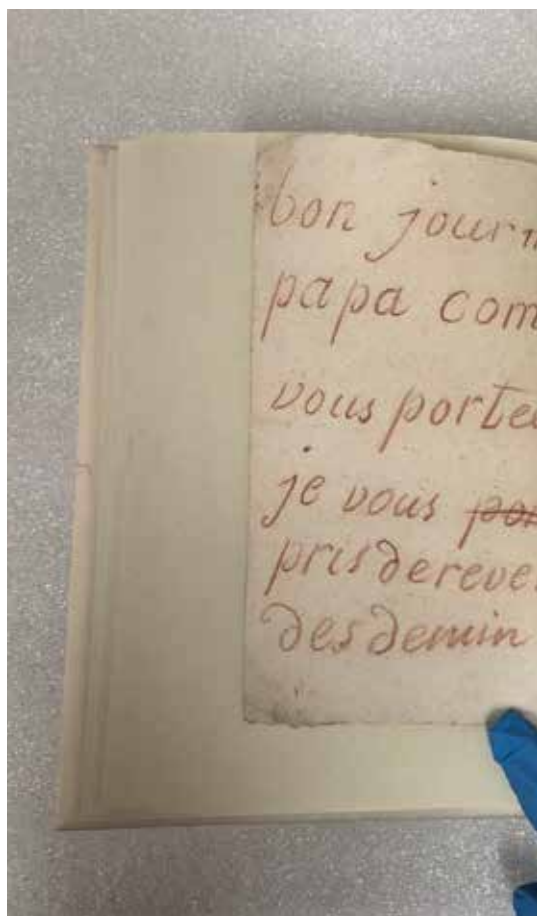 bon journ
papa com
vous porte
je vous po
pris de reve
des demin